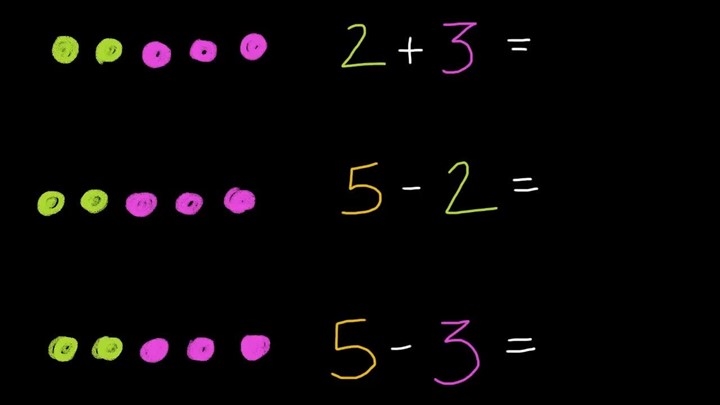 2 + 3 =
5 - 2 =
5 - 3 =